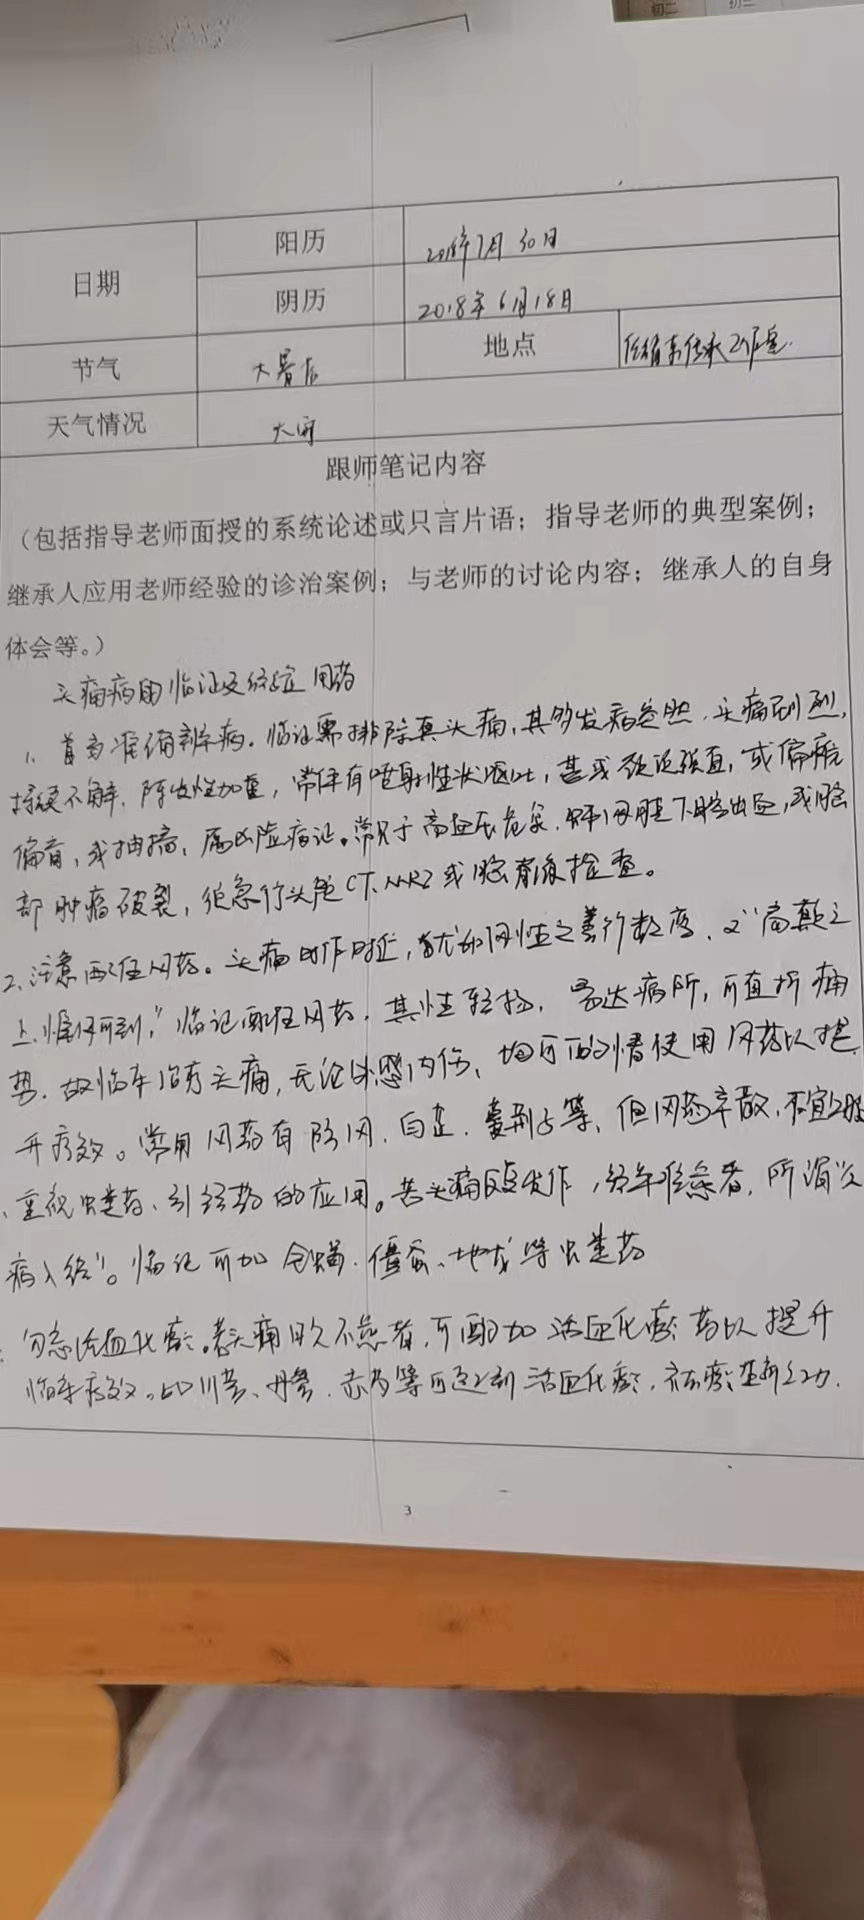 初二 初三
日期 阳历 2018年7月30日
阴历 2018年6月18日
节气 大暑后 地点 传承工作室.
天气情况 大雨
跟师笔记内容
（包括指导老师面授的系统论述或只言片语；指导老师的典型案例；
继承人应用老师经验的诊治案例；与老师的讨论内容；继承人的自身
体会等。）
头痛病的临证及经验用药
1、首当准确辨病. 临证需排除真头痛, 其多发病急骤. 头痛剧烈,
持续不解. 阵发性加重, 常伴有喷射性状呕吐, 甚或颈项强直, 或偏瘫
偏盲, 或抽搐, 属凶险病证。常见于高血压危象. 蛛网膜下腔出血, 或脑
部肿瘤破裂, 须急行头颅CT. MRI或脑脊液检查。
2、注意配伍风药。头痛时作时止, 犹如风性之善行数变, 又"高巅之
上. 惟风可到," 临证配伍风药, 其性轻扬, 易达病所, 可直折痛
势. 故临床治疗头痛, 无论外感内伤, 均可酌情使用风药以提
升疗效。常用风药有防风. 白芷. 蔓荆子等, 但风药辛散, 不宜久服
、重视虫类药、引经药的应用。若头痛反复发作, 经年难愈者, 所谓"久
病入络"。临证可加全蝎. 僵蚕、地龙等虫类药
勿忘活血化瘀。若头痛日久不愈者, 可配加活血化瘀药以提升
临床疗效。如川芎、丹参. 赤芍等可起到活血化瘀, 祛瘀生新之功.
3